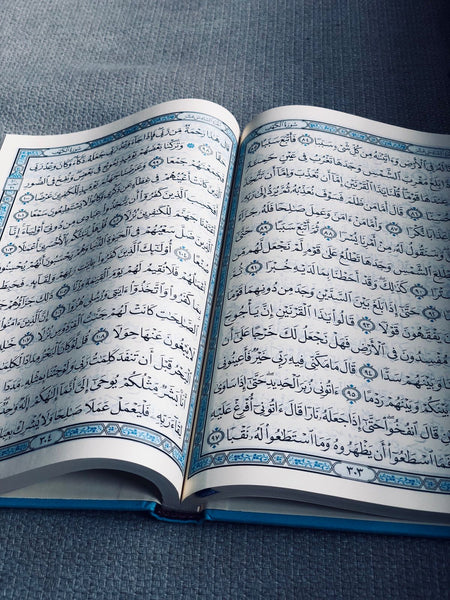 سورة الكهف
لَهُۥ فِي ٱلۡأَرۡضِ وَءَاتَيۡنَٰهُ مِن كُلِّ شَيۡءٖ سَبَبٗا ٨٤ فَأَتۡبَعَ سَبَبًا
إِذَا بَلَغَ مَغۡرِبَ ٱلشَّمۡسِ وَجَدَهَا تَغۡرُبُ فِي عَيۡنٍ حَمِئَةٖ
قَوۡمٗاۖ قُلۡنَا يَٰذَا ٱلۡقَرۡنَيۡنِ إِمَّآ أَن تُعَذِّبَ وَإِمَّآ أَن تَتَّخِذَ
حُسۡنٗا ٨٦ قَالَ أَمَّا مَن ظَلَمَ فَسَوۡفَ نُعَذِّبُهُۥ ثُمَّ يُرَدُّ إِلَىٰ رَبِّهِۦ
نُّكۡرٗا ٨٧ وَأَمَّا مَنۡ ءَامَنَ وَعَمِلَ صَٰلِحٗا فَلَهُۥ جَزَآءً
وَسَنَقُولُ لَهُۥ مِنۡ أَمۡرِنَا يُسۡرٗا ٨٨ ثُمَّ أَتۡبَعَ سَبَبًا ٨٩
مَطۡلِعَ ٱلشَّمۡسِ وَجَدَهَا تَطۡلُعُ عَلَىٰ قَوۡمٖ لَّمۡ نَجۡعَل لَّهُم
سِتۡرٗا ٩٠ كَذَٰلِكَۖ وَقَدۡ أَحَطۡنَا بِمَا لَدَيۡهِ خُبۡرٗا ٩١
حَتَّىٰٓ إِذَا بَلَغَ بَيۡنَ ٱلسَّدَّيۡنِ وَجَدَ مِن دُونِهِمَا قَوۡمٗا
يَفۡقَهُونَ قَوۡلٗا ٩٣ قَالُواْ يَٰذَا ٱلۡقَرۡنَيۡنِ إِنَّ يَأۡجُوجَ
مُفۡسِدُونَ فِي ٱلۡأَرۡضِ فَهَلۡ نَجۡعَلُ لَكَ خَرۡجًا عَلَىٰٓ أَن
وَبَيۡنَهُمۡ سَدّٗا ٩٤ قَالَ مَا مَكَّنِّي فِيهِ رَبِّي خَيۡرٞ فَأَعِينُونِي
بَيۡنَكُمۡ وَبَيۡنَهُمۡ رَدۡمًا ٩٥ ءَاتُونِي زُبَرَ ٱلۡحَدِيدِۖ حَتَّىٰٓ إِذَا سَاوَىٰ
قَالَ ٱنفُخُواْۖ حَتَّىٰٓ إِذَا جَعَلَهُۥ نَارٗا قَالَ ءَاتُونِيٓ أُفۡرِغۡ عَلَيۡهِ
فَمَا ٱسۡطَٰعُوٓاْ أَن يَظۡهَرُوهُ وَمَا ٱسۡتَطَٰعُواْ لَهُۥ نَقۡبٗا ٩٧
٣٠٣
قَالَ هَٰذَا رَحۡمَةٞ مِّن رَّبِّيۖ فَإِذَا جَآءَ وَعۡدُ رَبِّي جَعَلَهُۥ دَكَّآءَۖ وَكَانَ وَعۡدُ رَبِّي
حَقّٗا ٩٨ وَتَرَكۡنَا بَعۡضَهُمۡ يَوۡمَئِذٖ يَمُوجُ فِي بَعۡضٖۖ وَنُفِخَ فِي ٱلصُّورِ
فَجَمَعۡنَٰهُمۡ جَمۡعٗا ٩٩ وَعَرَضۡنَا جَهَنَّمَ يَوۡمَئِذٖ لِّلۡكَٰفِرِينَ عَرۡضًا ١٠٠
ٱلَّذِينَ كَانَتۡ أَعۡيُنُهُمۡ فِي غِطَآءٍ عَن ذِكۡرِي وَكَانُواْ لَا يَسۡتَطِيعُونَ سَمۡعًا ١٠١
أَفَحَسِبَ ٱلَّذِينَ كَفَرُوٓاْ أَن يَتَّخِذُواْ عِبَادِي مِن دُونِيٓ أَوۡلِيَآءَۚ إِنَّآ
أَعۡتَدۡنَا جَهَنَّمَ لِلۡكَٰفِرِينَ نُزُلٗا ١٠٢ قُلۡ هَلۡ نُنَبِّئُكُم بِٱلۡأَخۡسَرِينَ أَعۡمَٰلًا ١٠٣
ٱلَّذِينَ ضَلَّ سَعۡيُهُمۡ فِي ٱلۡحَيَوٰةِ ٱلدُّنۡيَا وَهُمۡ يَحۡسَبُونَ أَنَّهُمۡ يُحۡسِنُونَ
صُنۡعًا ١٠٤ أُوْلَٰٓئِكَ ٱلَّذِينَ كَفَرُواْ بِـَٔايَٰتِ رَبِّهِمۡ وَلِقَآئِهِۦ فَحَبِطَتۡ
أَعۡمَٰلُهُمۡ فَلَا نُقِيمُ لَهُمۡ يَوۡمَ ٱلۡقِيَٰمَةِ وَزۡنٗا ١٠٥ ذَٰلِكَ جَزَآؤُهُمۡ جَهَنَّمُ
بِمَا كَفَرُواْ وَٱتَّخَذُوٓاْ ءَايَٰتِي وَرُسُلِي هُزُوًا ١٠٦ إِنَّ ٱلَّذِينَ ءَامَنُواْ
وَعَمِلُواْ ٱلصَّٰلِحَٰتِ كَانَتۡ لَهُمۡ جَنَّٰتُ ٱلۡفِرۡدَوۡسِ نُزُلًا ١٠٧
خَٰلِدِينَ فِيهَا لَا يَبۡغُونَ عَنۡهَا حِوَلٗا ١٠٨ قُل لَّوۡ كَانَ ٱلۡبَحۡرُ مِدَادٗا
لِّكَلِمَٰتِ رَبِّي لَنَفِدَ ٱلۡبَحۡرُ قَبۡلَ أَن تَنفَدَ كَلِمَٰتُ رَبِّي وَلَوۡ جِئۡنَا بِمِثۡلِهِۦ مَدَدٗا
قُلۡ إِنَّمَآ أَنَا۠ بَشَرٞ مِّثۡلُكُمۡ يُوحَىٰٓ إِلَيَّ أَنَّمَآ إِلَٰهُكُمۡ إِلَٰهٞ وَٰحِدٞۖ فَمَن كَانَ
يَرۡجُواْ لِقَآءَ رَبِّهِۦ فَلۡيَعۡمَلۡ عَمَلٗا صَٰلِحٗا وَلَا يُشۡرِكۡ
٣٠٤